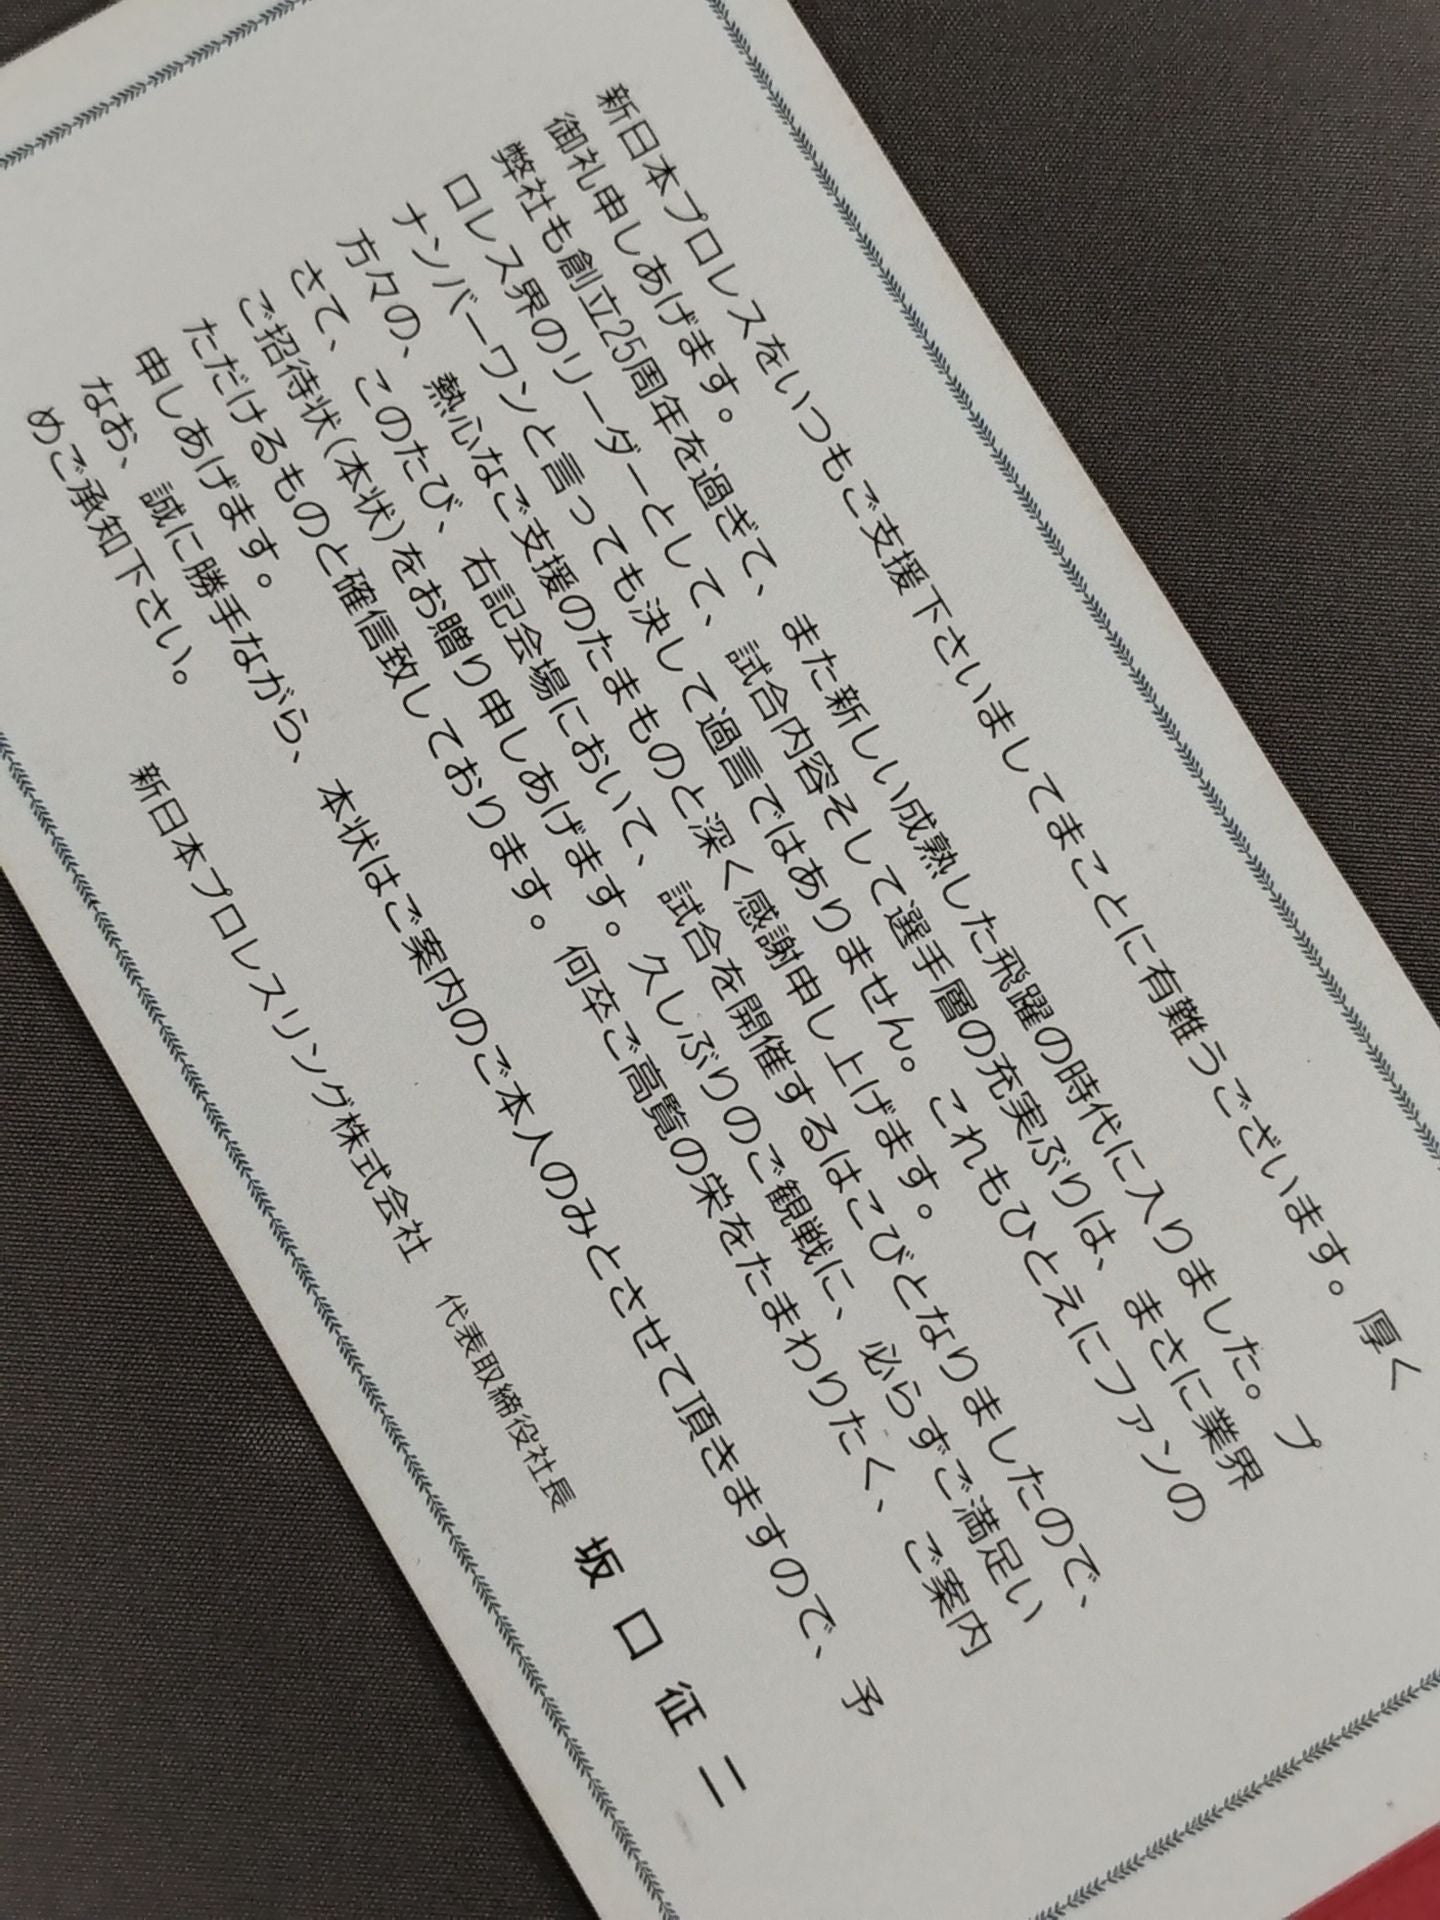 新日本プロレスをいつもご支援下さいましてまことに有難うございます。厚く
御礼申しあげます。
弊社も創立25周年を過ぎて、また新しい成熟した飛躍の時代に入りました。プ
ロレス界のリーダーとして、試合内容そして選手層の充実ぶりは、まさに業界
ナンバーワンと言っても決して過言ではありません。これもひとえにファンの
方々の、熱心なご支援のたまものと深く感謝申し上げます。
さて、このたび、右記会場において、試合を開催するはこびとなりましたので、
ご招待状(本状)をお贈り申しあげます。久しぶりのご観戦に、必らずご満足い
ただけるものと確信致しております。何卒ご高覧の栄をたまわりたく、ご案内
申しあげます。
なお、誠に勝手ながら、本状はご案内のご本人のみとさせて頂きますので、予
めご承知下さい。
新日本プロレスリング株式会社 代表取締役社長 坂口征二